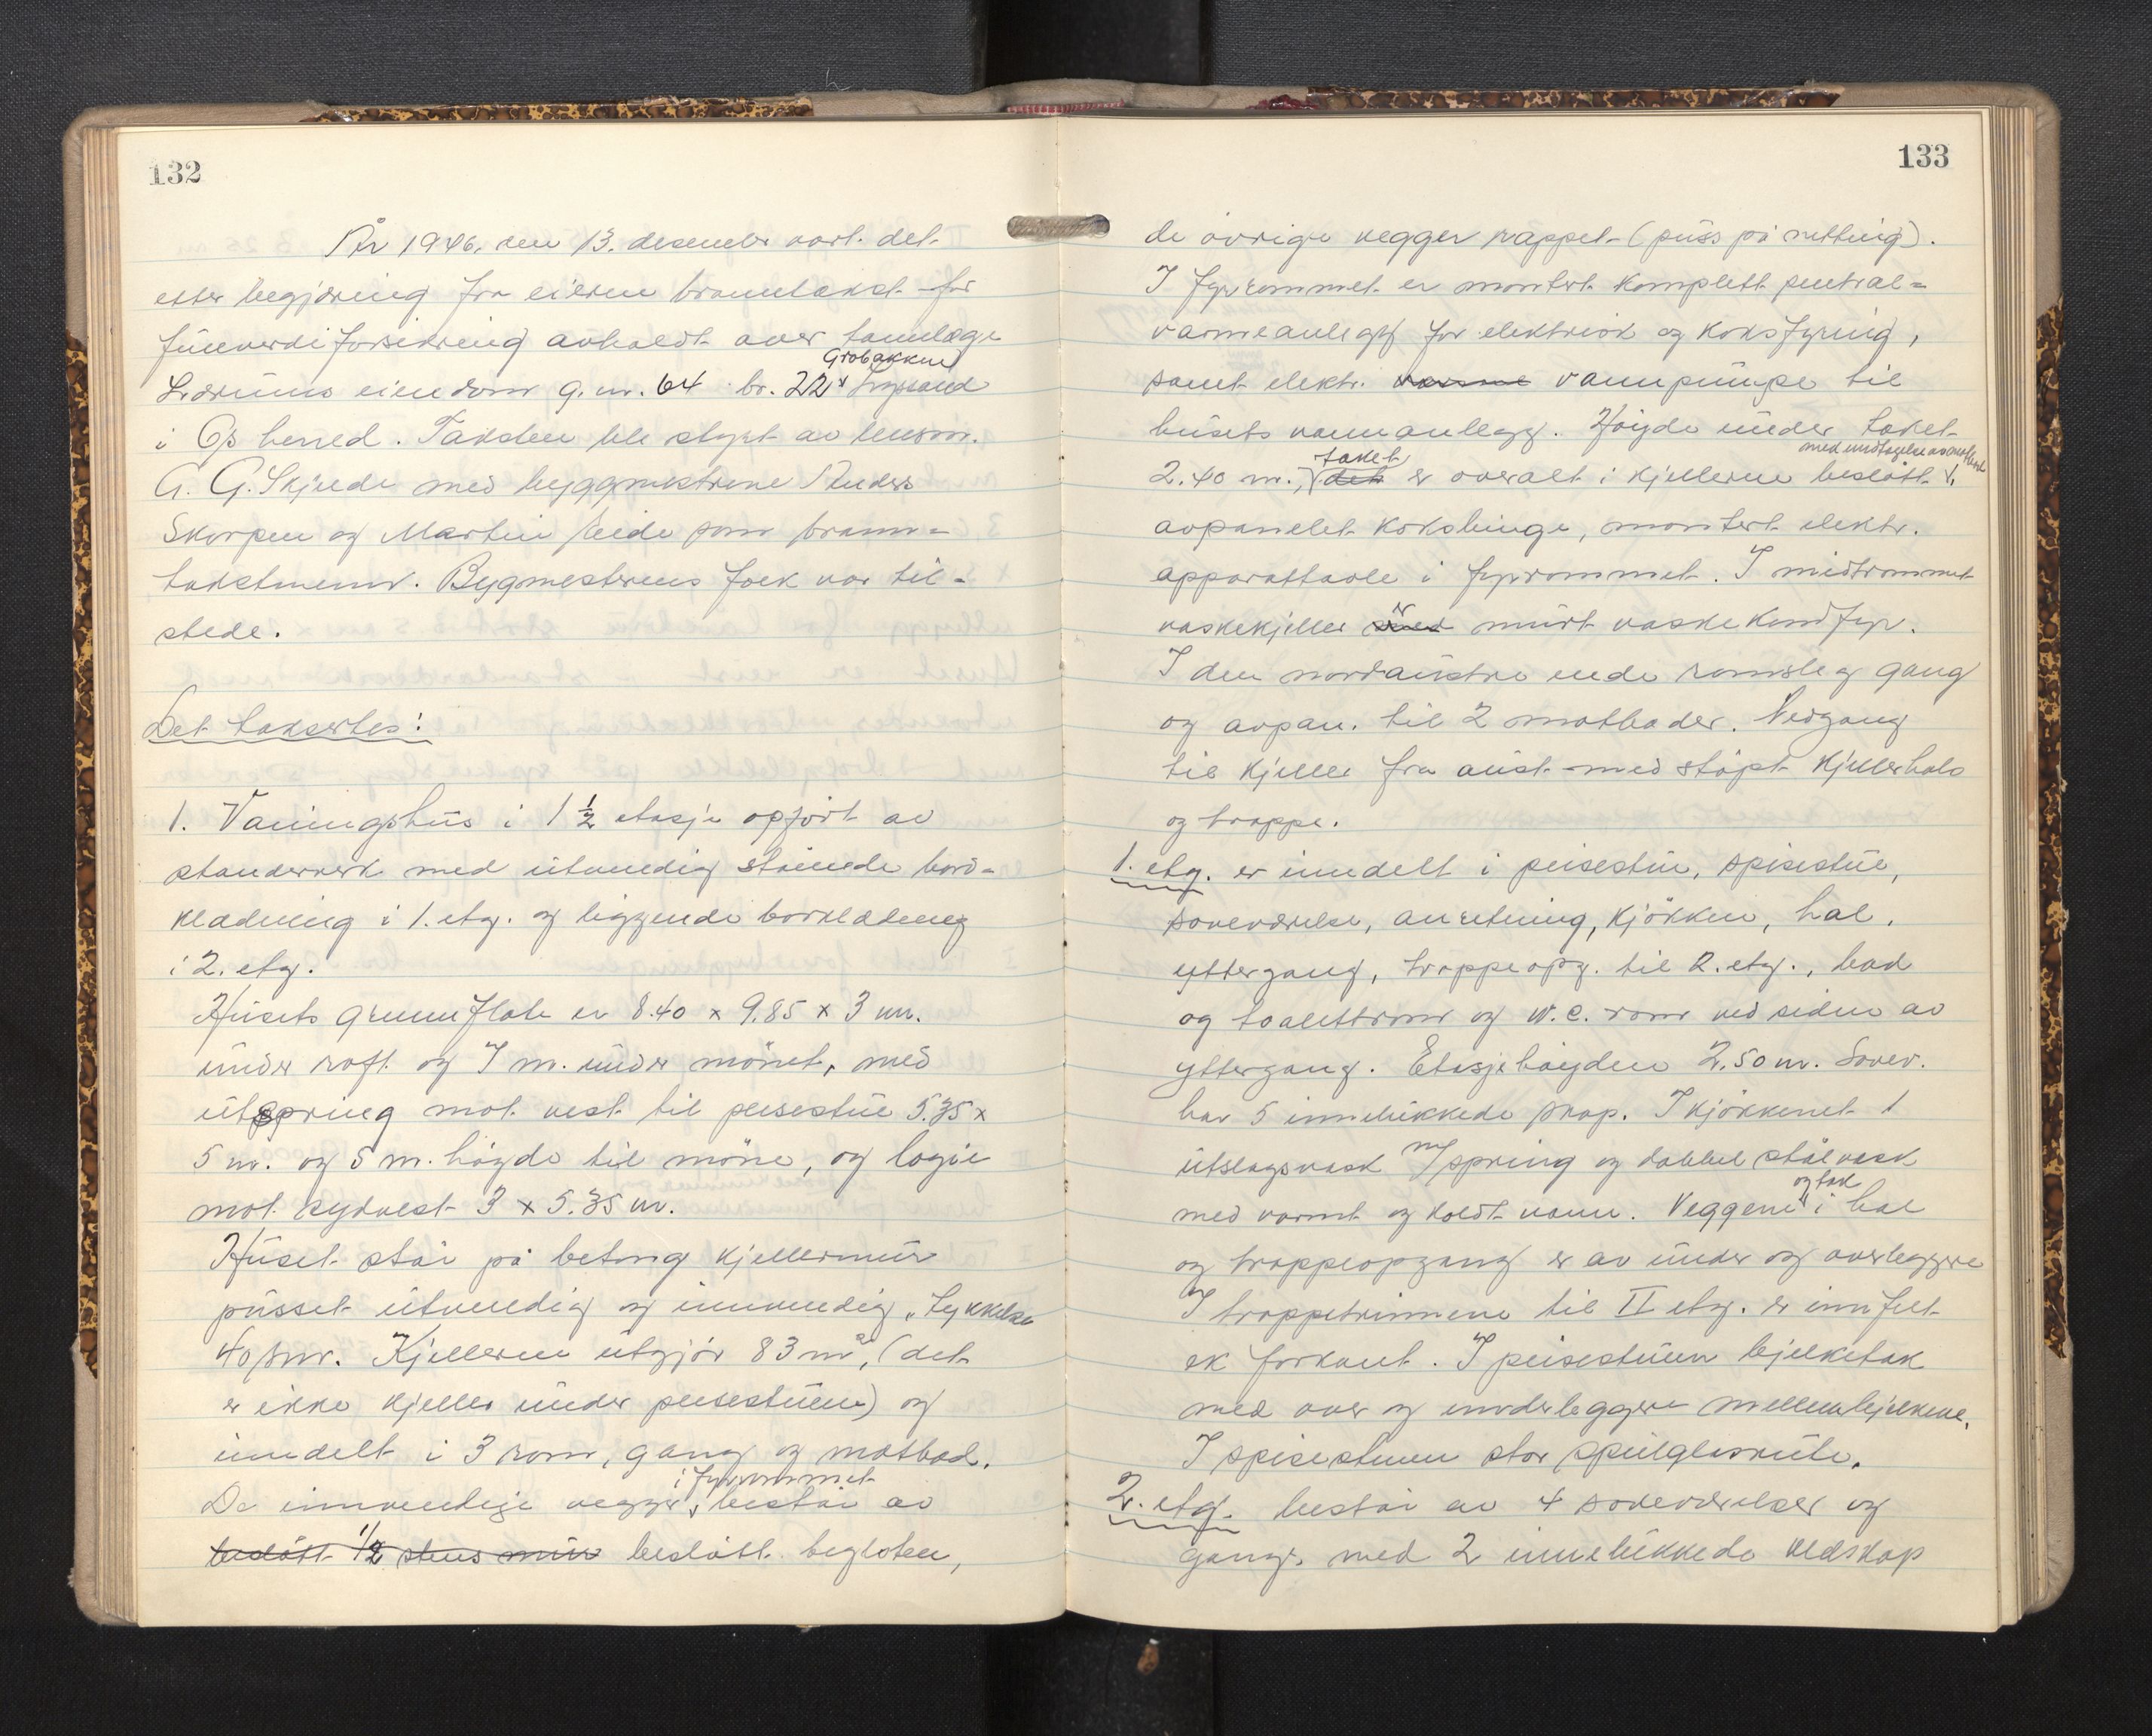 132
År 1946, den 13. desember vart det
etter begjæring fra eieren branntakst for
fullverdiforsikring avholdt over tannlæge
Grobakken
Lærums eiendom g.nr. 64 br. 22
i Os herred. Taksten ble styrt av lensm.
G. G. Skjeide med byggmestrene Anders
Skorpen og Martin Heide som brann-
takstmenn. Bygmestrene Foek var til-
stede.
Det taksertes:
1. Vaningshus i 1 1/2 etasje opfört av
standerverk med utvendig stående bord-
kledning i 1. etg. og liggende bordkledning
i 2. etg.
Husets grunnflate er 8.40 x 9.85 x 3 m.
under raft og 7 m. under mönet, med
utspring mot vest til peisestue 5.35 x
5 m. og 5 m. høyde til möne, og logie
mot sydvest 3 x 5.35 m.
Huset står på betong kjellermur
pusset utvendig og innvendig, tykkelse
40 cm. Kjelleren utgjör 83 m², (det
er ikke kjeller under peisestuen) og
inndelt i 3 rom, gang og matbod.
i fyrrommet
De innvendige vegger består av
beslått 1/2 stens mur beslått
133
de övrige vegger rappet (puss på netting).
I fyrrommet er montert komplett sentral-
varmeanlegg for elektrisk og koksfyring,
samt elektr. varme vannpumpe til
husets vannanlegg. Höyde under taket
taket med undtagelse av matbod
2.40 m., det er overalt i kjelleren beslått.
avpanelet koksbinge, montert elektr.
apparattavle i fyrrommet. I midtrommet
er
vaskekjeller med murt vaskekomfyr.
I den nordaustre ende romslig gang
og avpan. til 2 matboder. Nedgang
til kjeller fra aust med stöpt kjellerhals
og trappe.
1. etg. er inndelt i peisestue, spisestue,
soveværelse, anretning, kjökken, hal,
yttergang, trappeopg. til 2. etg., bad
og toalettrom og w.c. rom ved siden av
yttergang. Etasjehöyden 2.50 m. Sovev.
har 5 innebukkede skap. I kjökkenet 1
utslagsvask m/spring og dobbel stålvask
og tak
med varmt og koldt vann. Veggene i hal
og trappeopgang er av under og overleggere
I trappetrinnene til II etg. er innfelt
ek forkant. I peisestuen bjelketak
med over og underleggere mellem bjelkene.
I spisestuen stor speilglasrute.
2. etg. består av 4 soveværelser og
gang, med 2 innebukkede kledskap